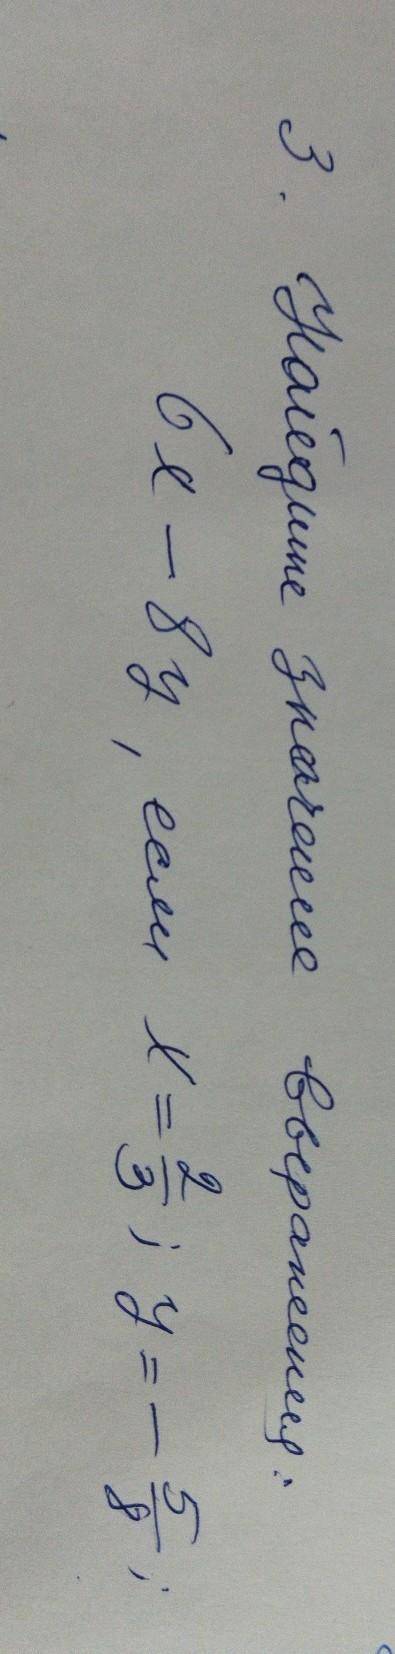 3. Найдите значение выражения:
6x - 8y, если x = 2/3; y = - 5/8;